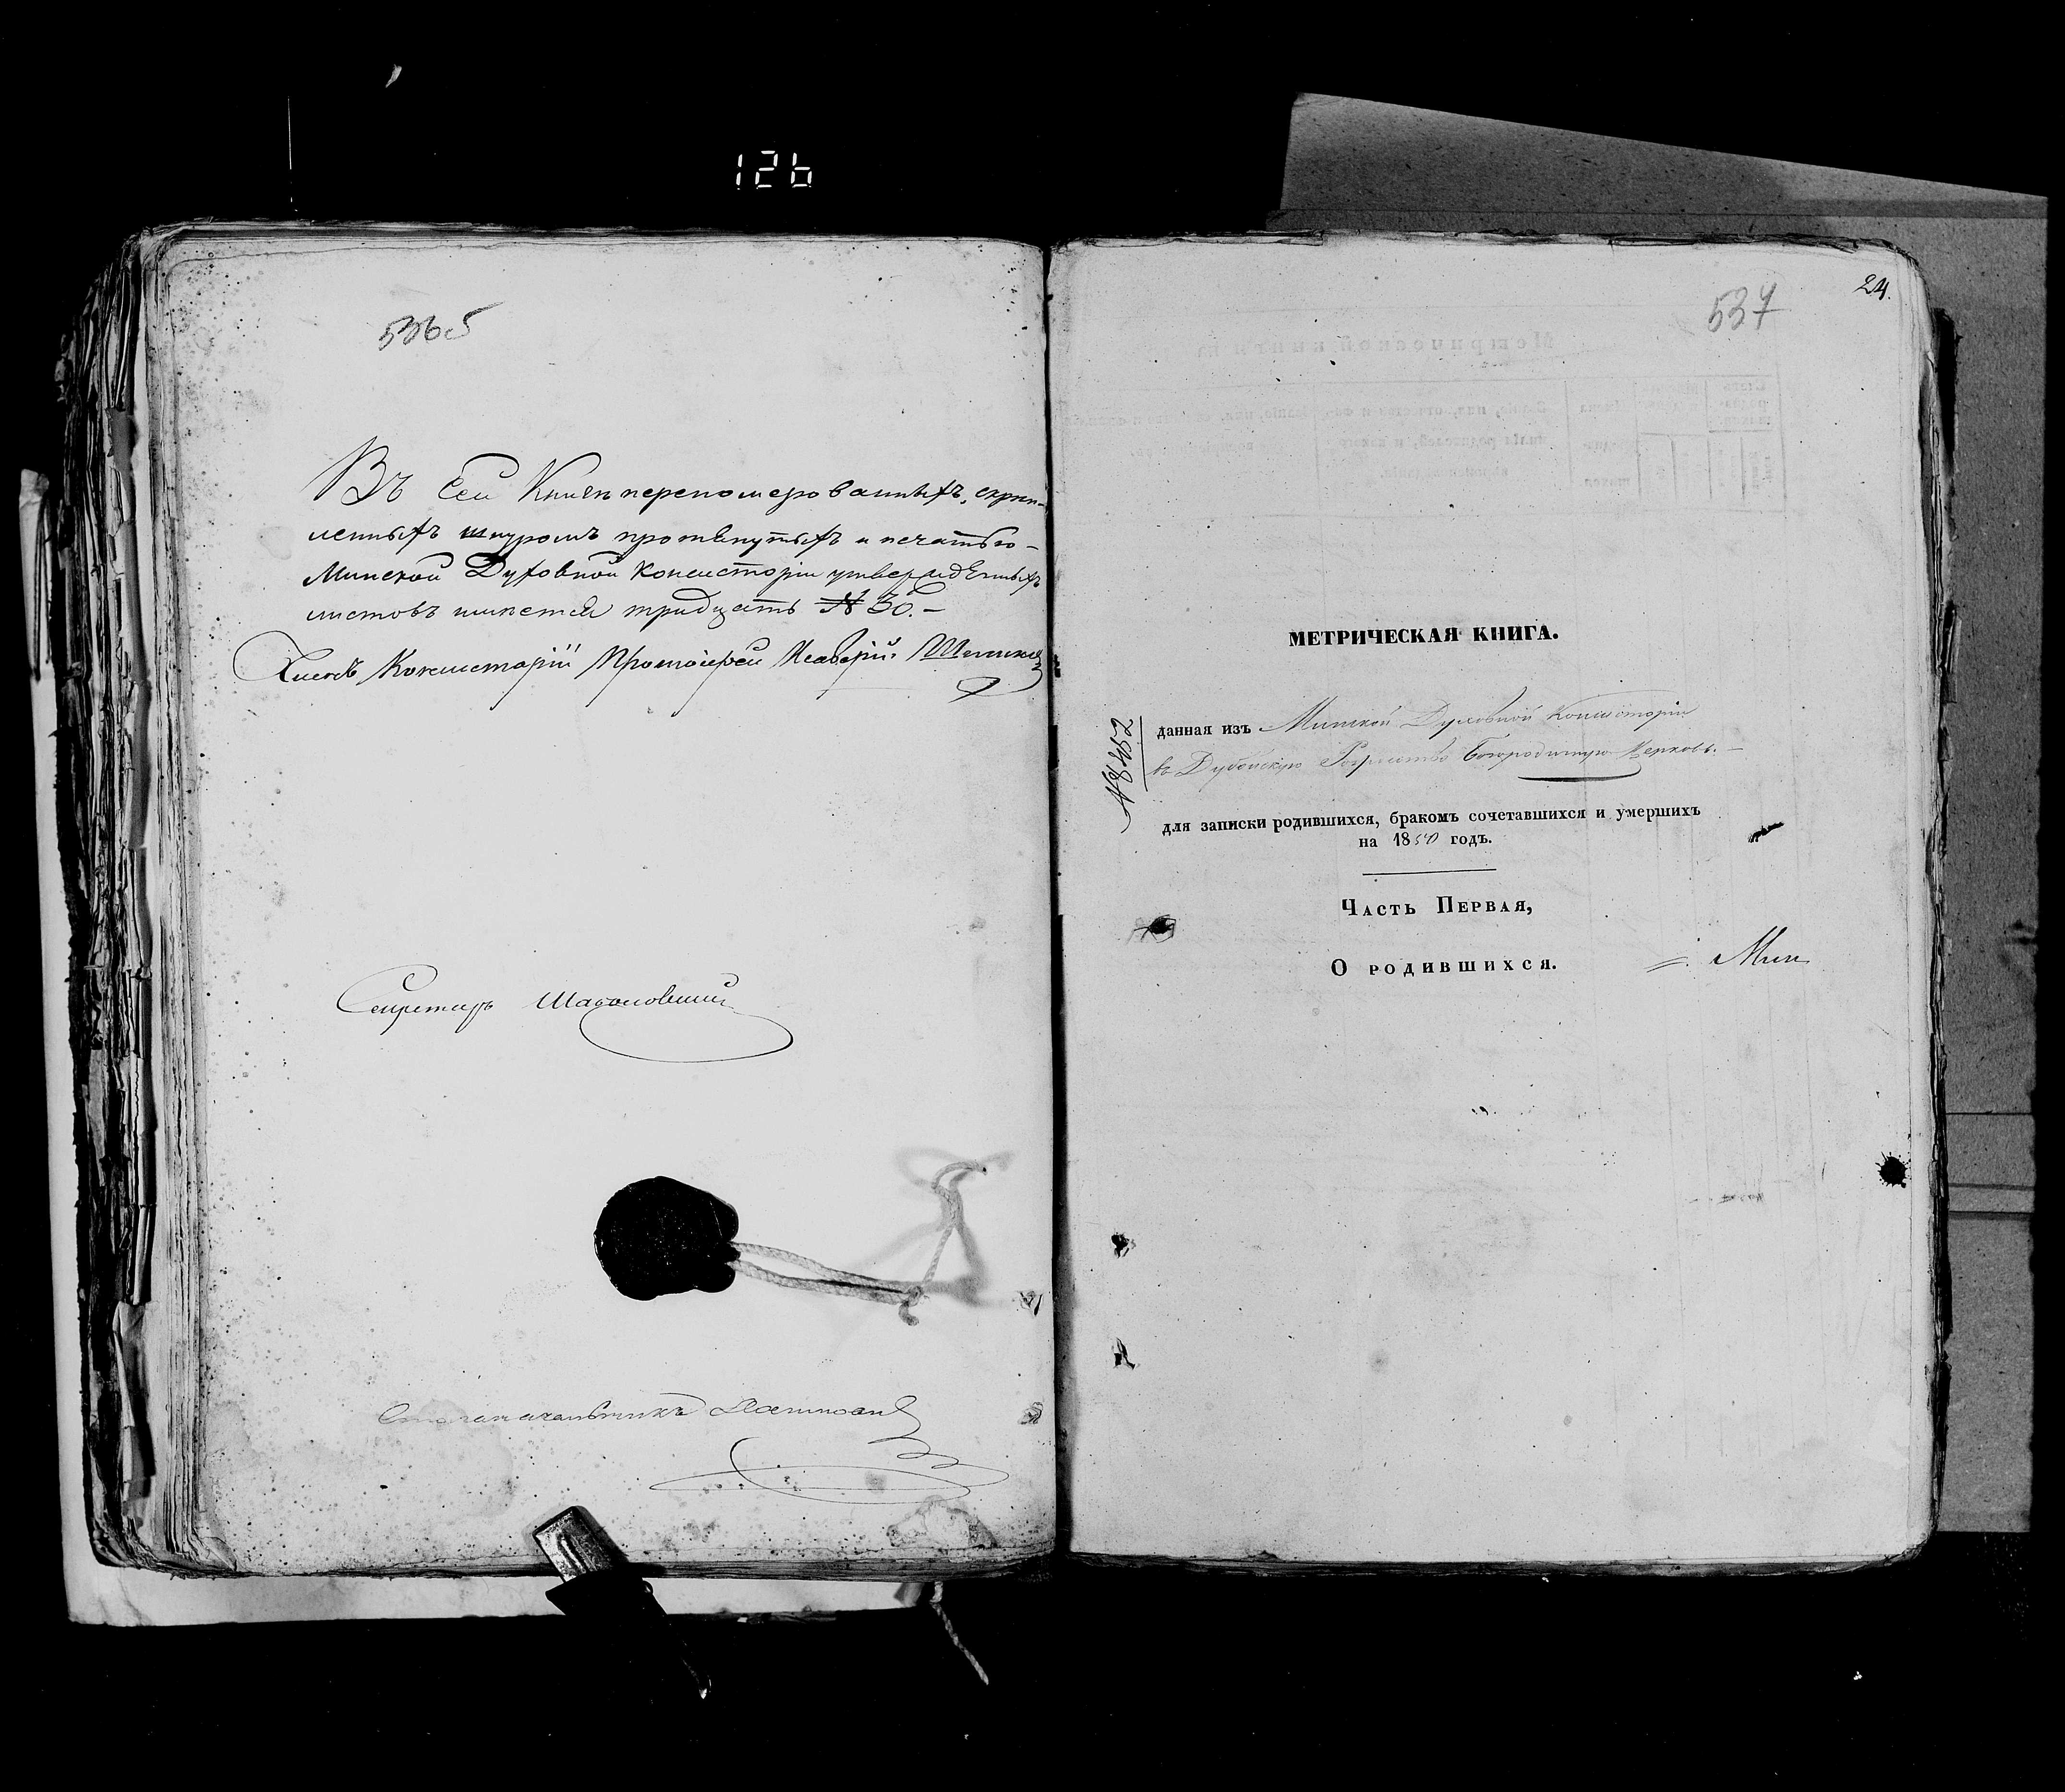 126
536 об
Въ сей Книгѣ перепомерованныхъ, скрѣп-
ленныхъ шнуромъ протянутыхъ и печатью
Минской Духовной Консисторіи утвержденныхъ
листовъ имѣется тридцать № 30. –
Членъ Консисторіи Протоіерей
Секретарь
Столоначальникъ
24.
537
МЕТРИЧЕСКАЯ КНИГА.
№ 8452
данная изъ Минской Духовной Консисторіи
въ Дубойскую Рождество Богородичную Церковь. –
для записки родившихся, бракомъ сочетавшихся и умершихъ
на 1850 годъ.
Часть Первая,
О родившихся.
Мин